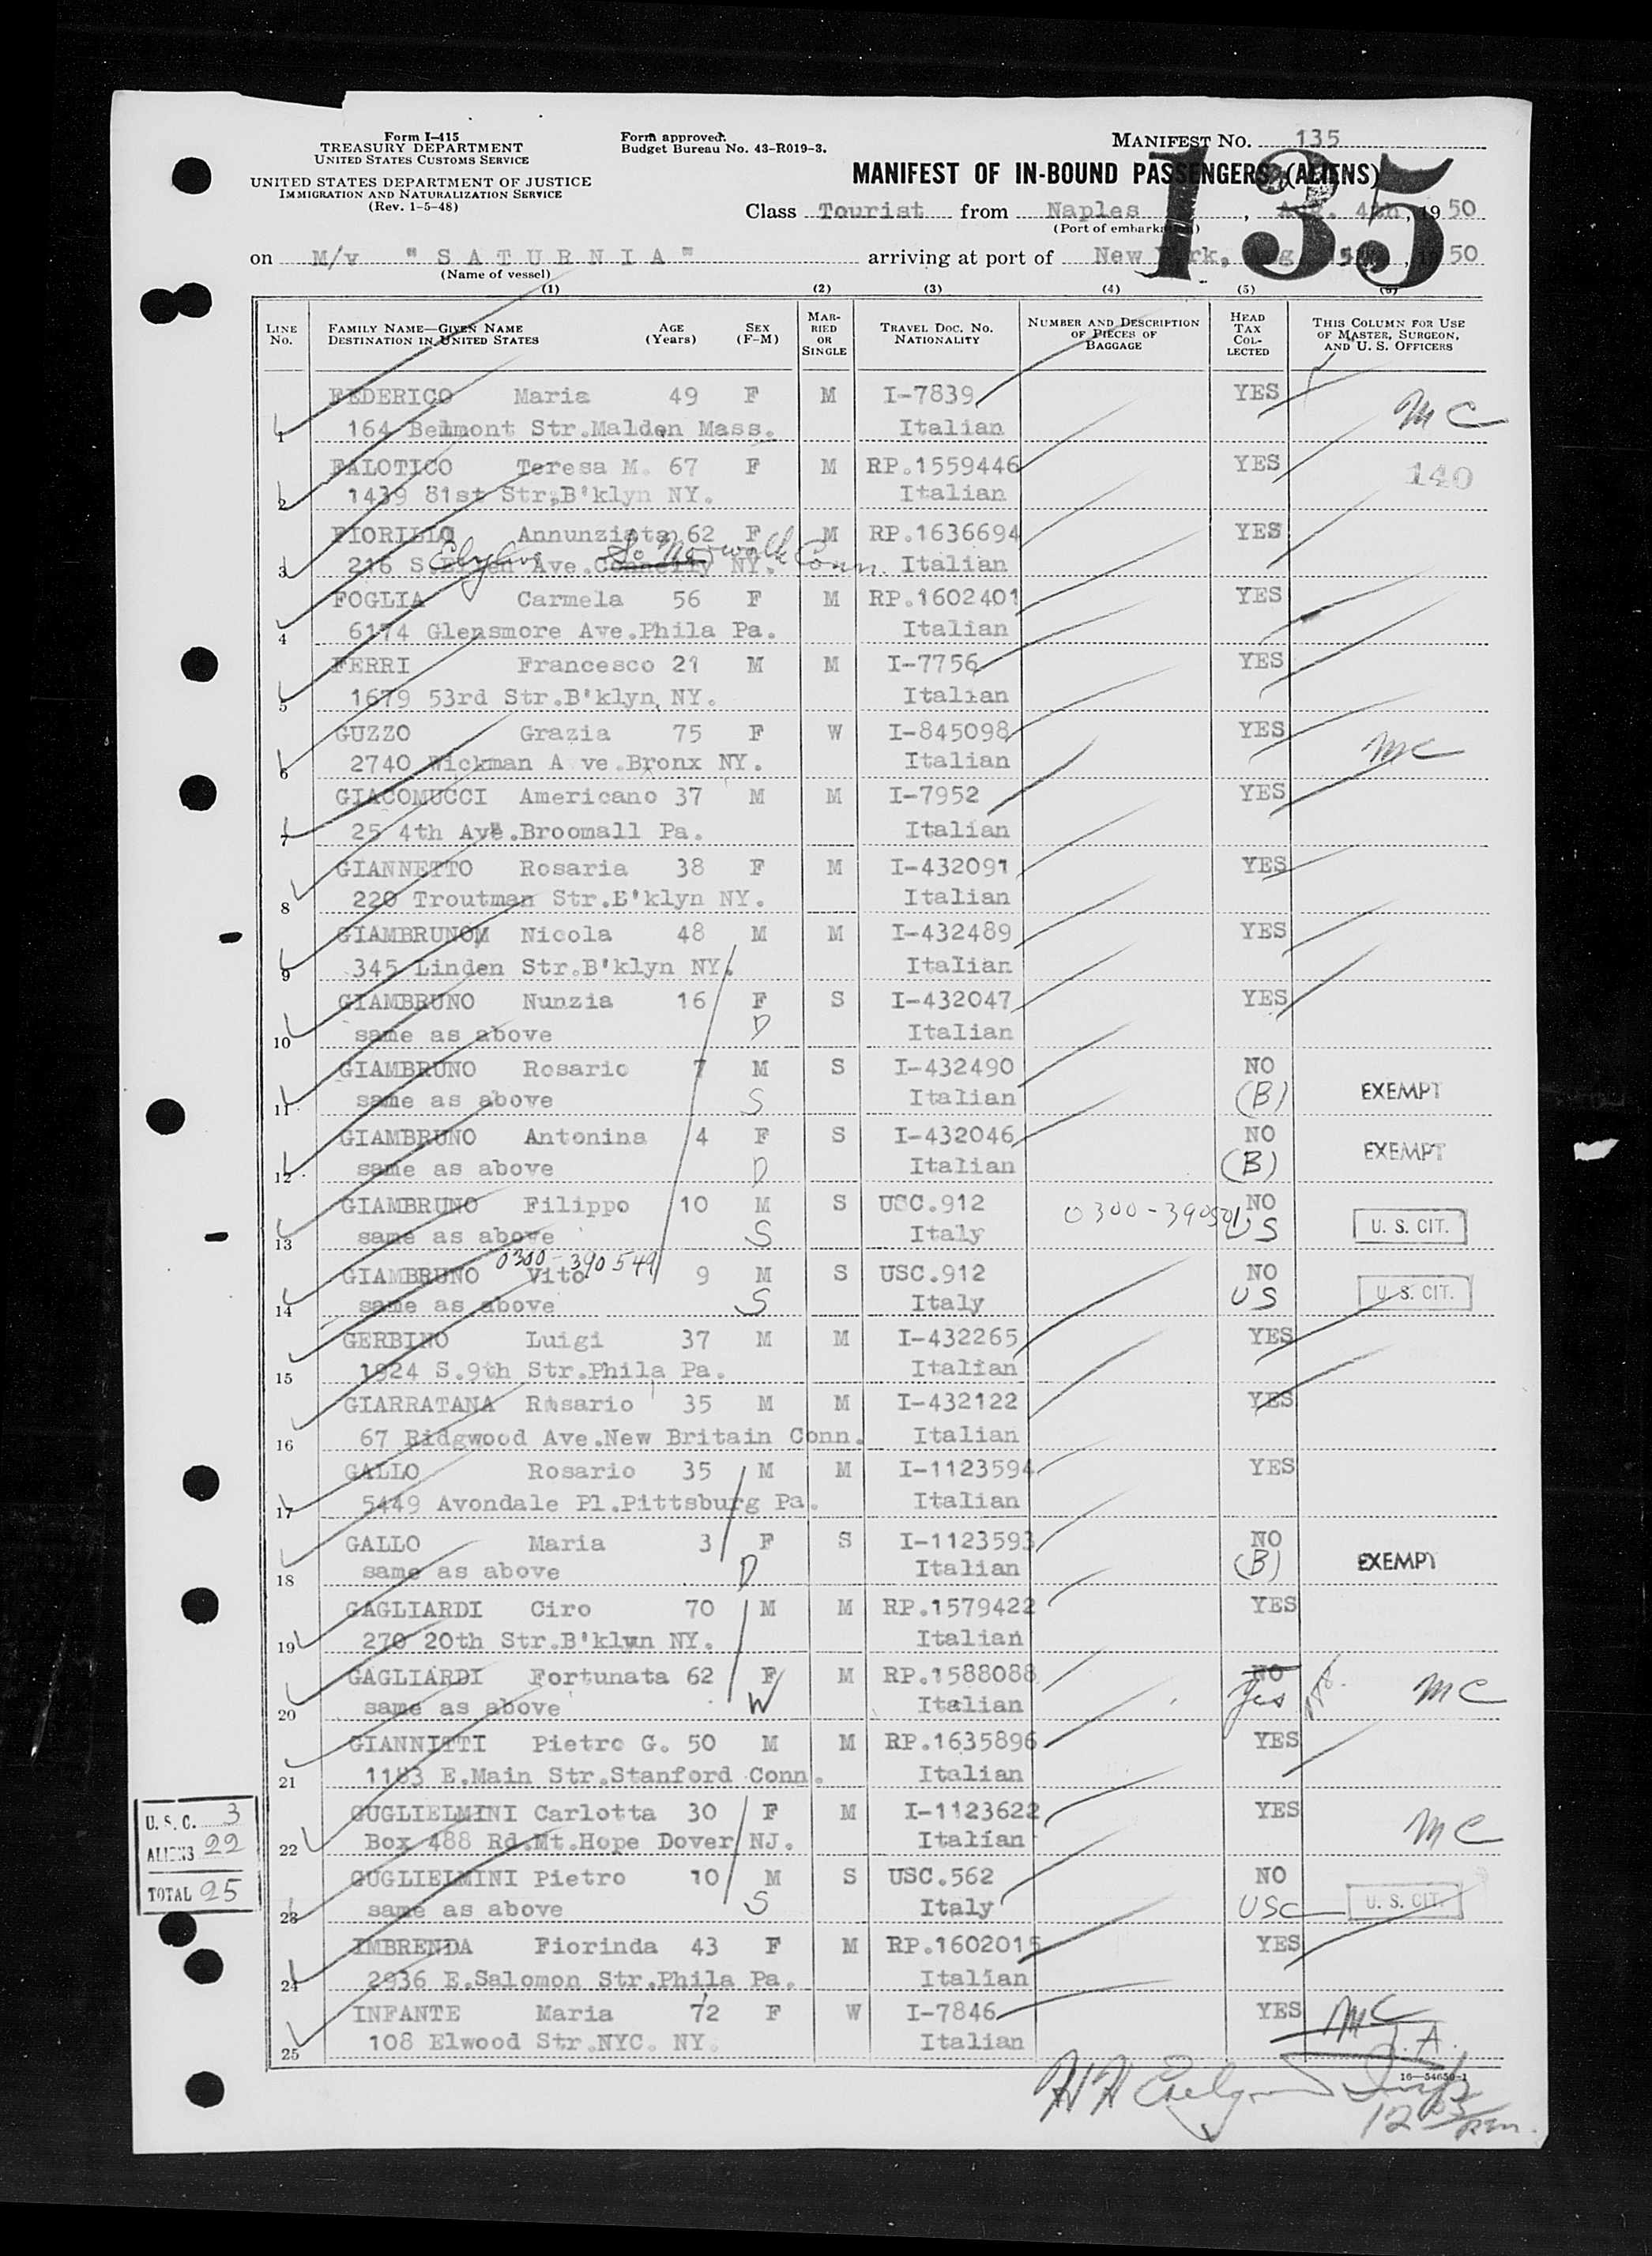 Form I-415
TREASURY DEPARTMENT
UNITED STATES CUSTOMS SERVICE
UNITED STATES DEPARTMENT OF JUSTICE
IMMIGRATION AND NATURALIZATION SERVICE
(Rev. 1-5-48)
Form approved.
Budget Bureau No. 43-R019-3.
MANIFEST No. 135
135
MANIFEST OF IN-BOUND PASSENGERS (ALIENS)
Class Tourist from Naples, Aug. 4th, 1950
(Port of embarkation)
on M/v "SATURNIA" arriving at port of New York, Aug 19 50
(Name of vessel)
(1) (2) (3) (4) (5) (6)
LINE No. FAMILY NAME—GIVEN NAME DESTINATION IN UNITED STATES AGE (Years) SEX (F-M) MARRIED OR SINGLE TRAVEL DOC. NO. NATIONALITY NUMBER AND DESCRIPTION OF PIECES OF BAGGAGE HEAD TAX COLLECTED THIS COLUMN FOR USE OF MASTER, SURGEON, AND U. S. OFFICERS
FEDERICO Maria 49 F M I-7839 YES MC
1 164 Belmont Str.Malden Mass. Italian
FALOTICO Teresa M. 67 F M RP.1559446 YES 140
2 1439 81st Str,B'klyn NY. Italian
FIORILLO Annunziata 62 F M RP.1636694 YES
So Norwalk Conn.
3 216 S. Ave.Connelly NY. Italian
FOGLIA Carmela 56 F M RP.1602401 YES
4 6174 Glensmore Ave.Phila Pa. Italian
FERRI Francesco 21 M M I-7756 YES
5 1679 53rd Str.B'klyn NY. Italian
GUZZO Grazia 75 F W I-845098 YES MC
6 2740 Wickman A ve.Bronx NY. Italian
GIACOMUCCI Americano 37 M M I-7952 YES
7 25 4th Ave.Broomall Pa. Italian
GIANNETTO Rosaria 38 F M I-432091 YES
8 220 Troutman Str.B'klyn NY. Italian
GIAMBRUNOM Nicola 48 M M I-432489 YES
9 345 Linden Str.B'klyn NY. Italian
GIAMBRUNO Nunzia 16 F S I-432047 YES
10 same as above D Italian
GIAMBRUNO Rosario 7 M S I-432490 NO
11 same as above S Italian (B) EXEMPT
GIAMBRUNO Antonina 4 F S I-432046 NO
12 same as above D Italian (B) EXEMPT
GIAMBRUNO Filippo 10 M S USC.912 0300-390501 NO
13 same as above S Italy US U. S. CIT.
0300-390549
GIAMBRUNO Vito 9 M S USC.912 NO
14 same as above S Italy US U. S. CIT.
GERBINO Luigi 37 M M I-432265 YES
15 1924 S.9th Str.Phila Pa. Italian
GIARRATANA Rosario 35 M M I-432122 YES
16 67 Ridgwood Ave.New Britain Conn. Italian
GALLO Rosario 35 M M I-1123594 YES
17 5449 Avondale Pl.Pittsburg Pa. Italian
GALLO Maria 3 F S I-1123593 NO
18 same as above D Italian (B) EXEMPT
GAGLIARDI Ciro 70 M M RP.1579422 YES
19 270 20th Str.B'klyn NY. Italian
GAGLIARDI Fortunata 62 F M RP.1588088 NO
20 same as above W Italian Yes MC
GIANNITTI Pietro G. 50 M M RP.1635896 YES
21 1183 E.Main Str.Stanford Conn. Italian
GUGLIELMINI Carlotta 30 F M I-1123622 YES MC
22 Box 488 Rd.Mt.Hope Dover NJ. Italian
GUGLIELMINI Pietro 10 M S USC.562 NO
23 same as above S Italy USC U. S. CIT.
IMBRENDA Fiorinda 43 F M RP.1602015 YES
24 2936 E.Salomon Str.Phila Pa. Italian
INFANTE Maria 72 F W I-7846 YES MC
25 108 Elwood Str.NYC. NY. Italian
U. S. C. 3
ALIENS 22
TOTAL 25
16—54650-1
Insp